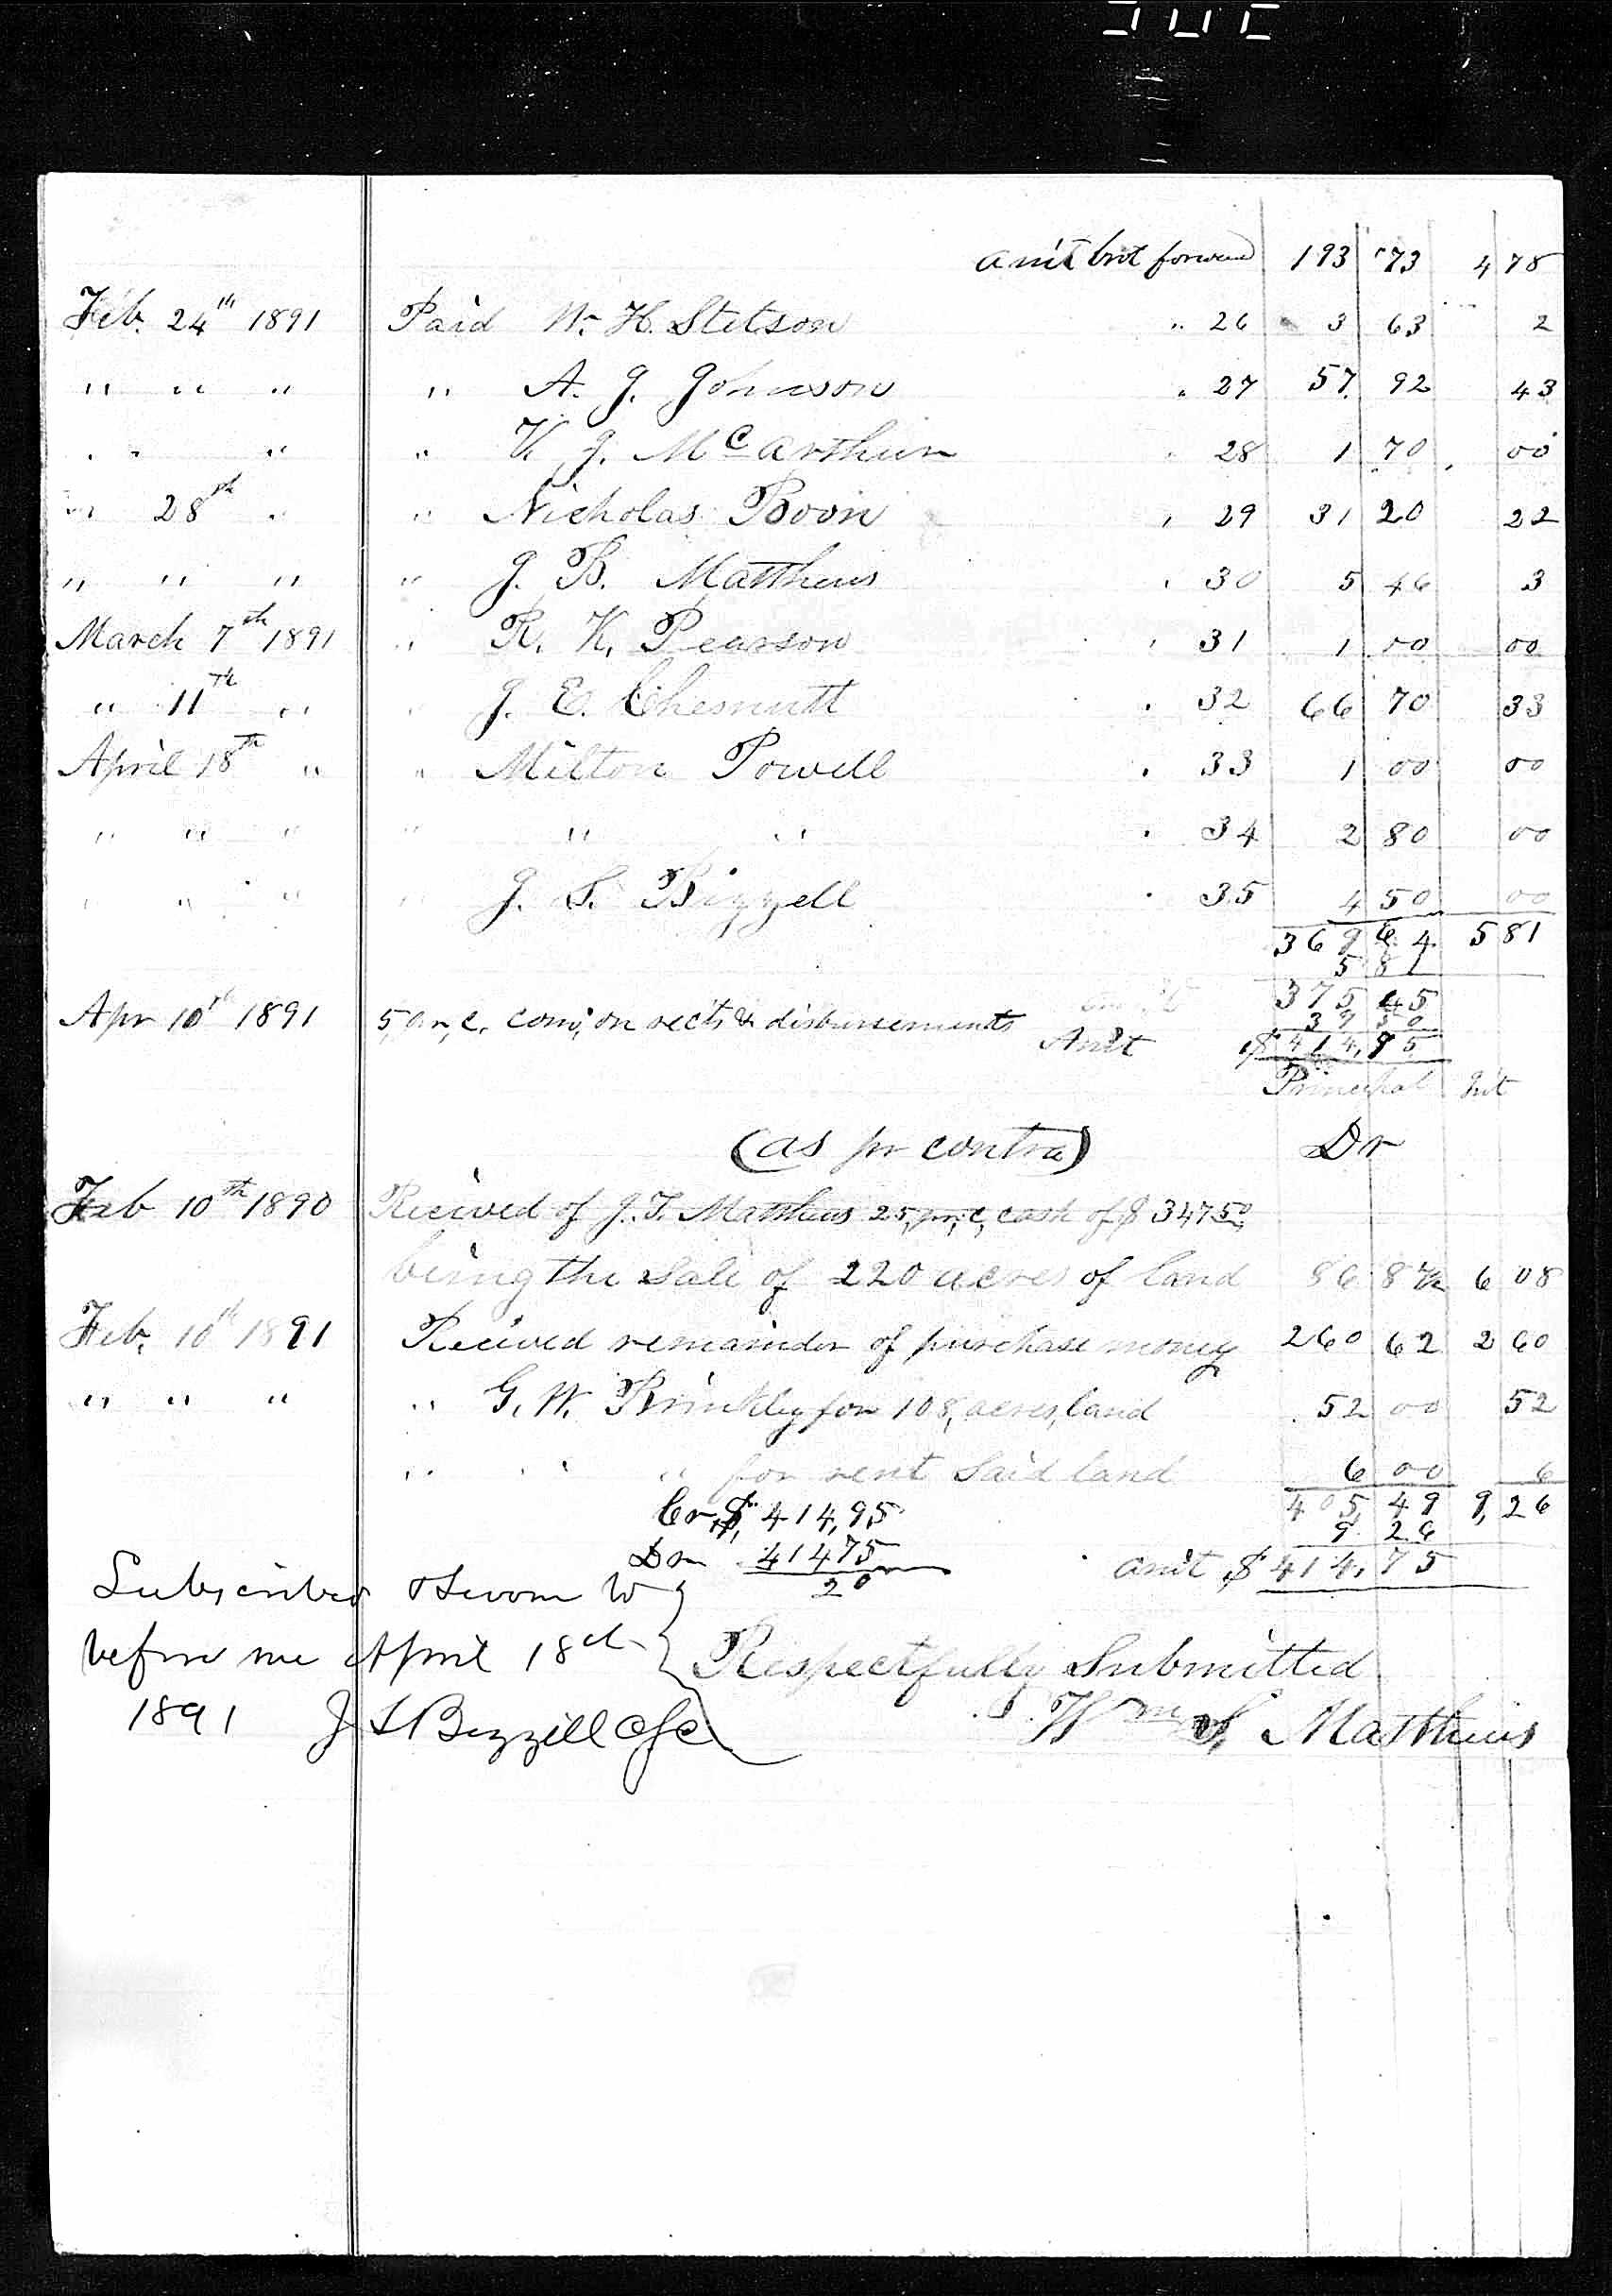 am't brot forward 193 73 4 78
Feb. 24th 1891 Paid W. H. Stetson " 26 3 63 2
" " " " A. J. Johnson " 27 57 92 43
" " " " K. J. McArthur " 28 1 70 00
" 28th " " Nicholas Boon " 29 31 20 22
" " " " J. B. Matthews " 30 5 46 3
March 7th 1891 " R. K. Pearson " 31 1 00 00
" 11th " " J. E. Chesnutt " 32 66 70 33
April 18th " " Milton Powell " 33 1 00 00
" " " " " " " 34 2 80 00
" " " " J. S. Bizzell " 35 4 50 00
369 64 5 81
5 81
375 45
Apr 10th 1891 5, pr, c, com; on rects & disbursements 39 50
Am't $ 414,95
Principal Int
(as pr contra) Dr
Feb 10th 1890 Recived of J. T. Matthews 25, pr, c, cash of $ 347 50
being the Sale of 220 acres of land 86 8 7/2 6 08
Feb. 10th 1891 Recived remainder of purchase money 260 62 2 60
" " " " G. W. Brinkley for 108, acres, land 52 00 52
" " " for rent Said land 6 00 6
Cr $ 414,95 405,49 9,26
9 26
Dr 41475 am't $ 414.75
20
Subscribed & Sworn to
before me April 18th Respectfully Submitted
1891 J S Bizzell CSC Wm S, Matthews